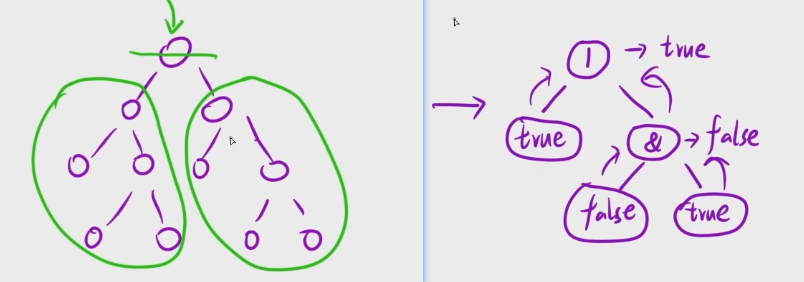 | → true
true
& → false
false
true